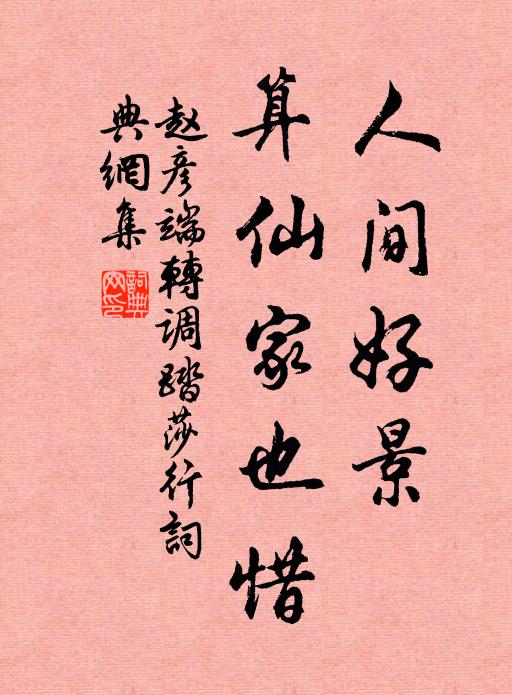 人間好景
算仙家也惜
赵彦端轉调踏莎行詞
典網集
詞典网印